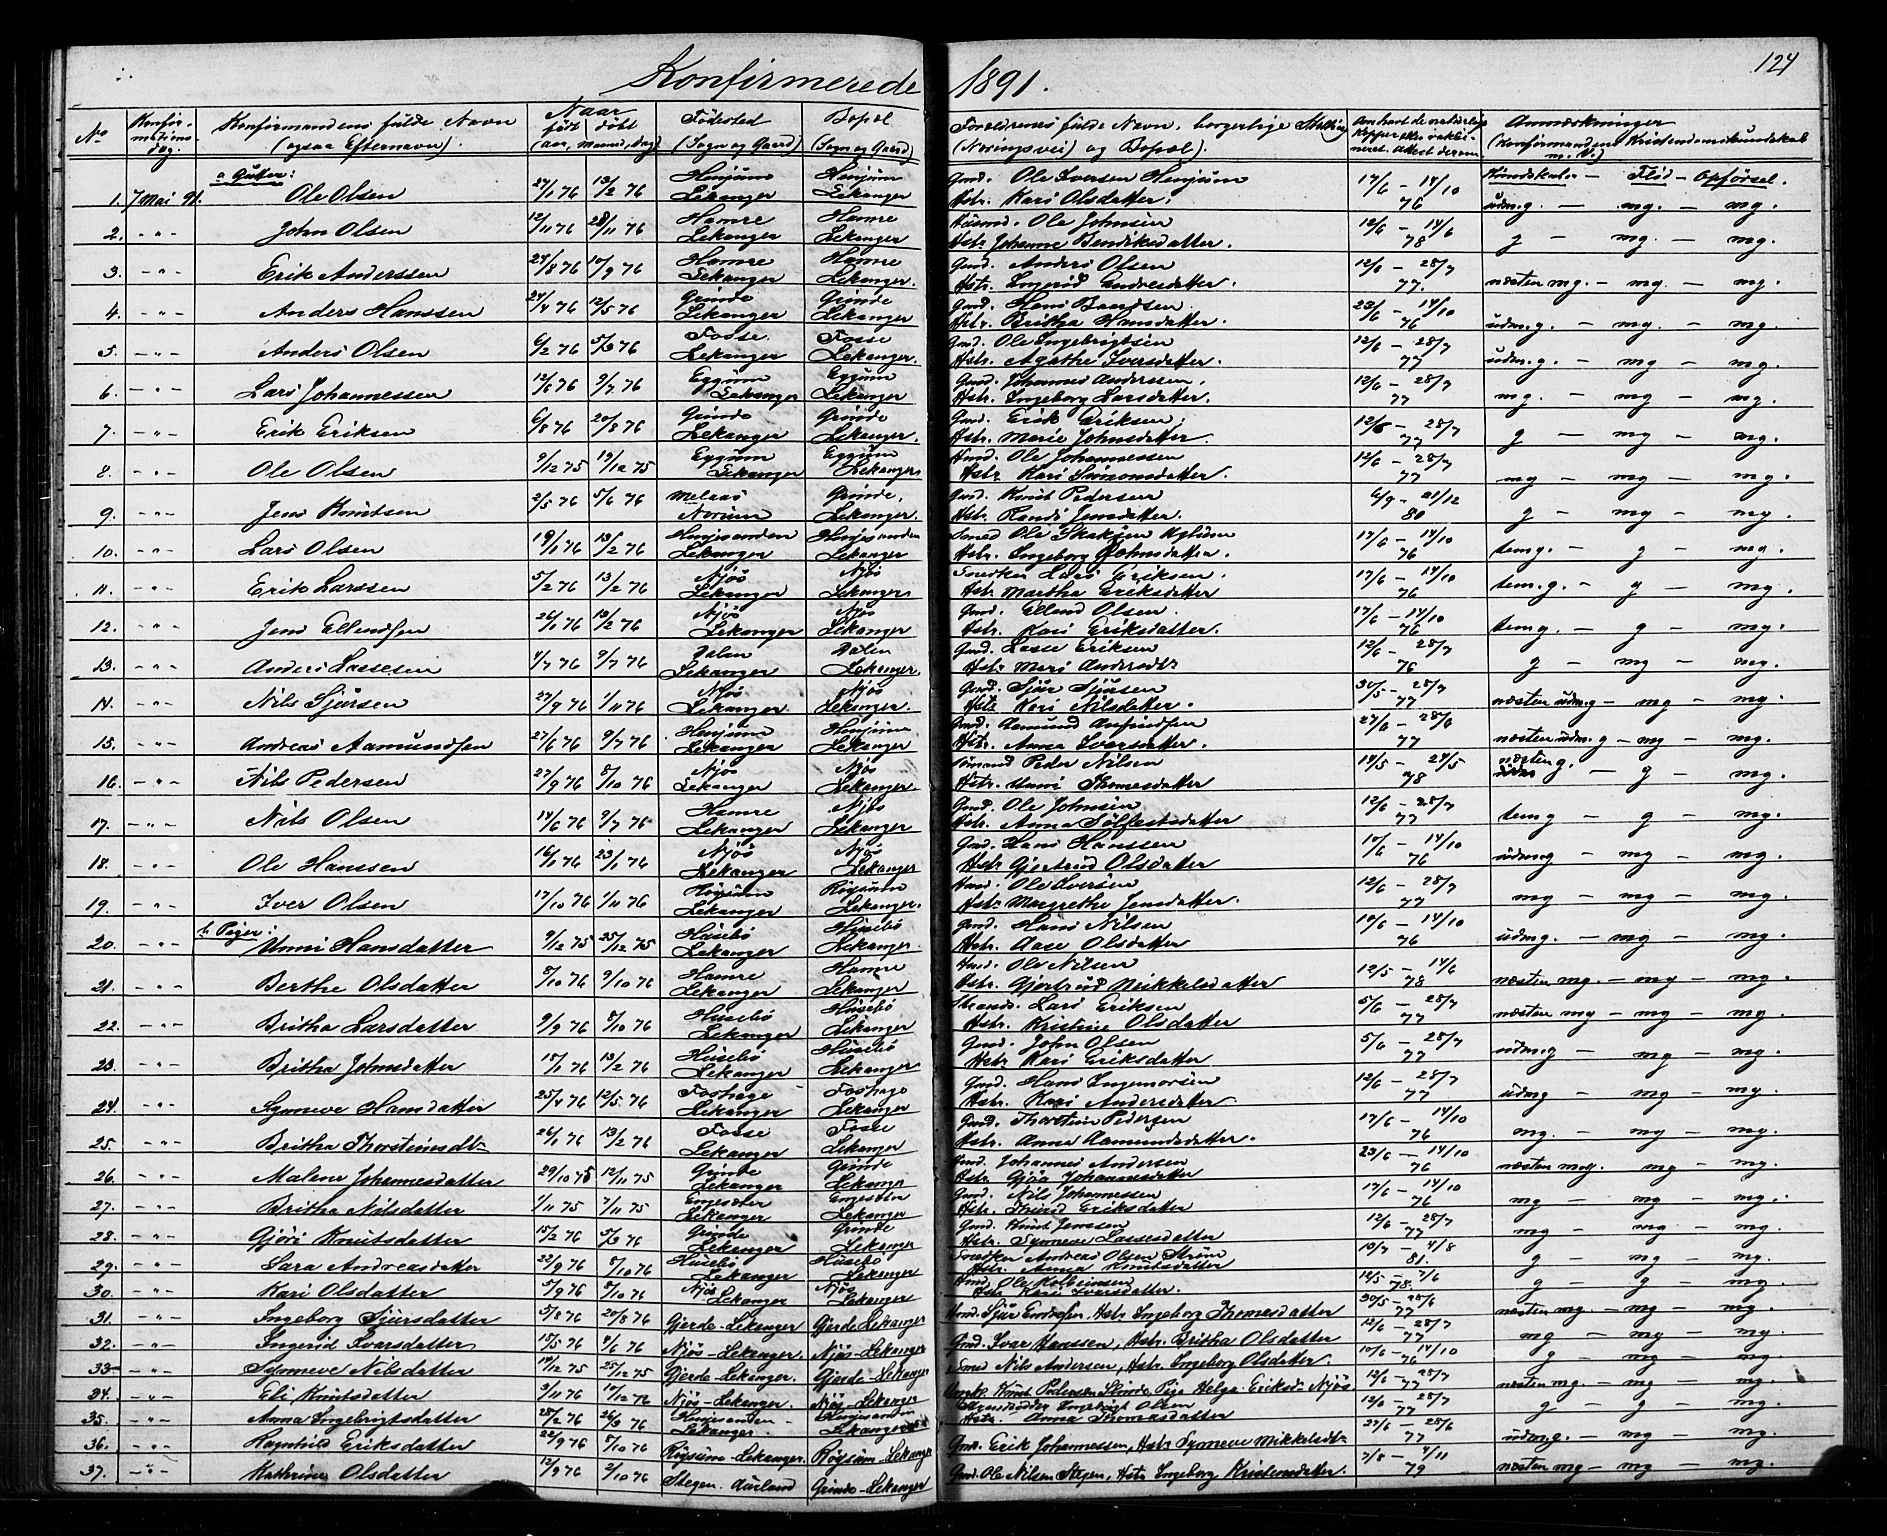 Konfirmerede 1891.
124
No | Konfirmationsdag. | Konfirmandens fulde Navn (ogsaa Efternavn). | Naar født døbt (aar, maaned, dag) | Fødested (Sogn og Gaard) | Bopæl (Sogn og Gaard) | Forældrenes fulde Navn, borgerlige Stilling (Næringsvei) og Bopæl). | Om havt de naturlige Kopper eller vaksineret. Attest derom | Anmærkninger (Konfirmandens Kristendomskundskab m. V.)
a Gutter: Kundskab - Flid - Opførsel.
1. 7 Mai 91. Ole Olsen 27/1 76 13/2 76 Henjum Lekanger Henjum Lekanger Gmd. Ole Iversen Henjum Hstr. Kari Olsdatter. 17/6 - 14/10 76 udm.g. - mg. - mg.
2. - " - John Olsen 12/11 76 28/11 76 Hamre Lekanger Hamre Lekanger Husmd. Ole Johnsen Hstr. Johanne Bendiksdatter. 12/6 - 14/6 78 g - mg. - mg.
3. - " - Erik Anderssen 24/8 76 10/9 76 Hamre Lekanger Hamre Lekanger. Gmd. Anders Olsen Hstr. Ingerid Endresdatter. 12/6 - 28/7 77. næsten mg. - mg. - mg.
4. - " - Anders Hanssen 24/4 76 12/5 76 Grinde Lekanger Grinde Lekanger Gmd. Hans Baardsen Hstr. Britha Hansdatter. 23/6 - 14/10 76 udm.g. - mg - mg.
5. - " - Anders Olsen 6/2 76 5/3 76 Fosse Lekanger Fosse Lekanger. Gmd. Ole Ingebrigtsen Hstr. Agathe Iversdatter. 12/6 - 28/7 77 udm.g. - mg - mg.
6. - " - Lars Johannessen 12/6 76 9/7 76 Eggum Lekanger Eggum Lekanger Gmd. Johannes Anderssen. Hstr. Ingeborg Larsdatter. 12/6 - 28/7 77 mg. - mg - mg.
7. - " - Erik Eriksen 6/8 76 20/8 76 Grinde Lekanger Grinde Lekanger. Gmd. Erik Eriksen. Hstr. Marie Johnsdatter. 12/6 - 28/7 77 g - mg - mg.
8. - " - Ole Olsen 9/12 75 19/12 75 Eggum Lekanger Eggum Lekanger Hmd. Ole Johannessen Hstr. Kari Simonsdatter. 12/6 - 28/7 77 mg - mg - mg.
9. - " - Jens Knutsen 2/5 76 5/6 76 Melaas Norum Grinde, Lekanger. Gmd. Knut Pedersen Hstr. Randi Jensdatter. 6/9 - 21/12 80 g - mg - mg.
10. - " - Lars Olsen 19/1 76 13/2 76 Henjesanden Lekanger Henjesanden Lekanger Smed Ole Hstr. Ingeborg Johnsdatter. 17/6 - 14/10 76 tem g. - g - mg.
11. - " - Erik Larssen 5/2 76 13/2 76 Njøs Lekanger Njøs Lekanger Snedker Lars Eriksen. Hstr. Martha Eriksdatter 17/6 - 14/10 76 tem.g. - g - mg.
12. - " - Jens Ellendsen 26/1 76 13/2 76 Njøs Lekanger Njøs Lekanger Gmd. Ellend Olsen. Hstr. Kari Eriksdatter. 17/6 - 14/10 76 tem g. - g - mg.
13. - " - Anders Lassesen 4/7 76 9/7 76 Dalen Lekanger Dalen Lekanger. Gmd. Lasse Eriksen Hstr. Mari Andersdtr 12/6 - 28/7 76 g - mg - mg.
14. - " - Nils Sjursen 27/9 76 1/11 76 Njøs Lekanger Njøs Lekanger. Gmd. Sjur Sjursen Hstr Kari Nilsdatter. 30/5 - 28/7 77 næsten udm.g - mg - mg.
15. - " - Andreas Aamundsen 27/6 76 9/7 76 Henjum Lekanger Henjum Lekanger Gmd. Aamund Hstr. Anna Iversdatter. 27/6 - 28/6 77 næsten udm.g - mg - mg.
16. - " - Nils Pedersen 27/9 76 8/10 76 Njøs Lekanger Njøs Lekanger. Peder Nilsen Hstr. Unni Thomesdatter 14/5 - 24/5 78 næsten g. - g - mg.
17. - " - Nils Olsen 14/6 76 9/7 76 Hamre Lekanger Njøs Lekanger Gmd. Ole Johnsen Hstr. Anna Sølfestsdatter 12/6 - 28/7 77 tem g - g - mg.
18. - " - Ole Hanssen 16/1 76 23/1 76 Njøs Lekanger Njøs Lekanger Gmd. Hans Hanssen Hstr. Gjertrud Olsdatter 17/6 - 14/10 76 udm g - mg - mg.
19. - " - Iver Olsen 17/10 76 1/11 76 Røysum Lekanger Røysum Lekanger. Hmd. Ole Iversen Hstr Magrethe Jensdatter. 12/6 - 28/7 77 mg - mg - mg.
b Piger:
20. - " - Unni Hansdatter 9/12 75 25/12 75 Husebø Lekanger Husebø Lekanger Gmd. Hans Nilsen Hstr. Aase Olsdatter 17/6 - 14/10 76 udm g. - mg - mg.
21. - " - Berthe Olsdatter 8/10 76 9/10 76 Hamre Lekanger Hamre Lekanger Hmd. Ole Nilsen Hstr. Gjertrud Mikkelsdatter 12/5 - 14/6 78 næsten mg. - mg - mg.
22. - " - Britha Larsdatter 9/9 76 8/10 76 Husebø Lekanger Husebø Lekanger Strandr. Lars Eriksen Hstr. Kristine Olsdatter 5/6 - 28/7 77 næsten mg - mg - mg.
23. - " - Britha Johnsdatter 18/1 76 13/2 76 Husebø Lekanger Husebø Lekanger Gmd. John Olsen Hstr. Kari Eriksdatter 5/6 - 28/7 77 udm.g - mg - mg.
24. - " - Synneve Hansdatter 25/4 76 12/5 76 Foshage Lekanger Foshage Lekanger Gmd. Hans Ingemorsen Hstr. Kari Andersdatter 12/6 - 28/7 77 udmg - mg - mg.
25. - " - Britha Thorsteinsdtr 26/1 76 13/2 76 Fosse Lekanger Fosse Lekanger Gmd. Thorstein Pedersen Hstr. Anna Aamundsdatter. 17/6 - 14/10 76 mg. - mg - mg.
26. - " - Malene Johannesdatter 29/10 75 12/11 75 Grinde Lekanger Grinde Lekanger Gmd. Johannes Andersen Hstr. Gjøa Johannesdatter 23/6 - 14/10 76 næsten mg. - mg - mg.
27. - " - Britha Nilsdatter 1/11 75 7/11 75 Engesæter Lekanger Engesæter Lekanger Gmd. Nils Johannessen Hstr. Eriksdatter 17/6 - 14/10 76 mg - mg - mg.
28. - " - Gjøri Knutsdatter 15/2 76 5/3 76 Grinde Lekanger Grinde Lekanger Gmd. Knut Jenssen Hstr. Synneve Lassesdatter 12/6 - 28/7 77 mg - mg - mg.
29. - " - Sara Andreasdatter 22/9 76 8/10 76 Husebø Lekanger Husebø Lekanger Snedker Andreas Olsen Strum Hstr. Anna Knutsdatter 13/7 - 4/8 81. g - mg - mg.
30. - " - Kari Olsdatter 5/9 76 8/10 76 Njøs Lekanger Njøs Lekanger Hmd. Ole Kolbeinsen Hstr Kari Iversdatter. 12/5 - 7/6 78 g - g - mg.
31. - " - Ingeborg Sjursdatter 5/8 76 20/8 76 Gjerde-Lekanger Gjerde Lekanger Hmd. Sjur Endresen, Hstr Ingeborg Thomesdatter 30/5 - 28/6 77 næsten mg - mg - mg.
32. - " - Ingerid Ivarsdatter 15/5 76 4/6 76 Njøs-Lekanger. Njøs-Lekanger Gmd. Ivar Hanssen, Hstr. Britha Olsdatter 12/6 - 28/7 77 mg - mg - mg.
33 - " - Synneve Nilsdatter 14/12 75 25/12 75 Gjerde-Lekanger. Gjerde-Lekanger Smed Nils Andersen, Hstr. Ingeborg Olsdatter. 17/6 - 14/10 76 g - mg - mg.
34. - " - Eli Knutsdatter 3/11 76 10/12 76 Njøs-Lekanger. Njøs-Lekanger Ungk. Knut Pedersen Skinde, Pige Helga Eriksdr Njøs 12/6 - 28/7 77 næsten mg. - mg - mg.
35. - " - Anna Ingebrigtsdatter 28/2 76 26/3 76 Henjesanden Lekanger. Henjesanden Lekanger Ingebrigt Olsen Hstr. Anna Thomasdatter 12/6 - 28/7 77 g - g - mg.
36. - " - Ragnhild Eriksdatter 22/9 76 8/10 76 Røysum-Lekanger. Røysum-Lekanger Gmd. Erik Johannessen, Hstr Synneve Mikkelsdtr 27/6 - 28/6 77 udmg. - mg - mg.
37. - " - Kathrine Olsdatter 12/9 76 2/10 76 Stegen. Aurland Grinde-Lekanger Gmd. Ole Nilsen Stegen, Hstr Ingeborg Kristensdatter. 7/8 - 4/11 79 næsten mg - mg - mg.